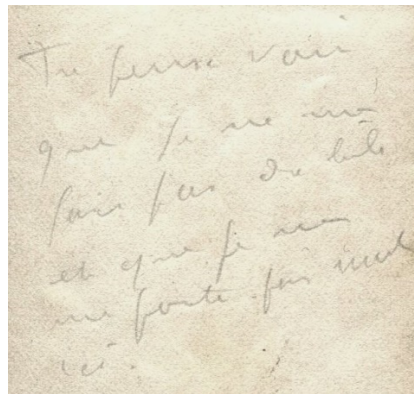 Tu peux voir
que je ne m'
fais pas de bile
et que je ne
me porte pas mal
ici.